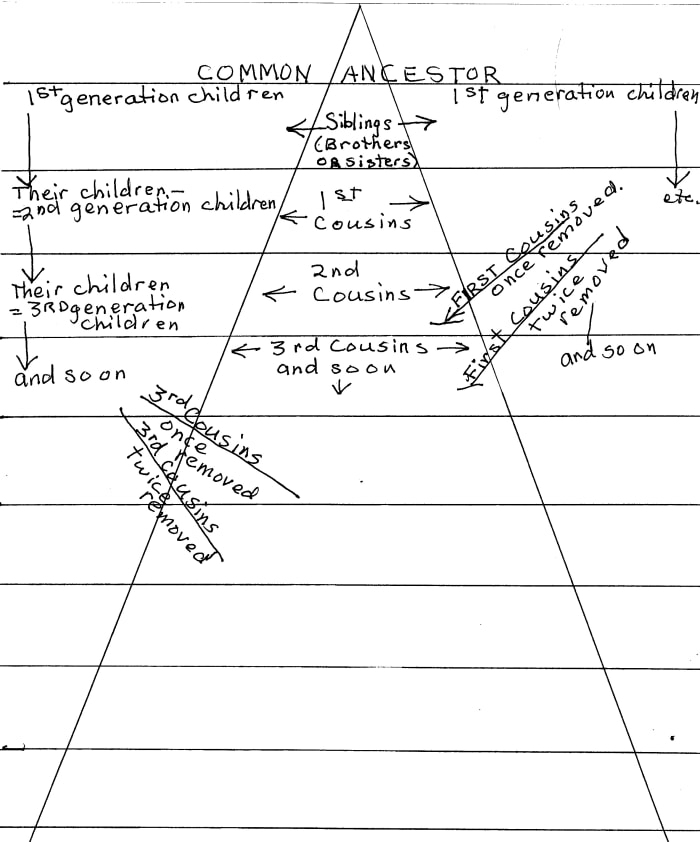 COMMON ANCESTOR
1st generation children
1st generation children
Siblings
(Brothers
OR sisters)
Their children—
=2nd generation children
1st
Cousins
etc.
FIRST COUSINS
once removed.
2nd
Cousins
Their children
= 3RD generation
children
First Cousins
twice
removed
3rd Cousins
and so on
and so on
and so on
3rd Cousins
once
removed
3rd cousins
twice
removed